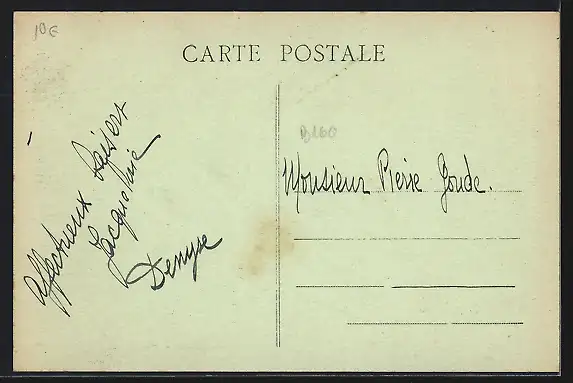 10€
CARTE POSTALE
B160
Affectueux Baisers
Jacqueline
Denyse
Monsieur Pierre Goude.